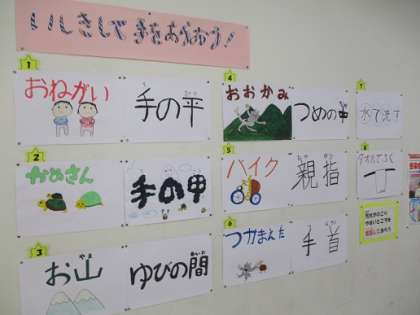 いしきして手をあらおう!
1
おねがい
手の平
2
かめさん
手の甲
3
お山
ゆびの間
4
おおかみ
つめの中
5
バイク
親指
6
つかまえた
手首
7
水で流す
8
タオルでふく